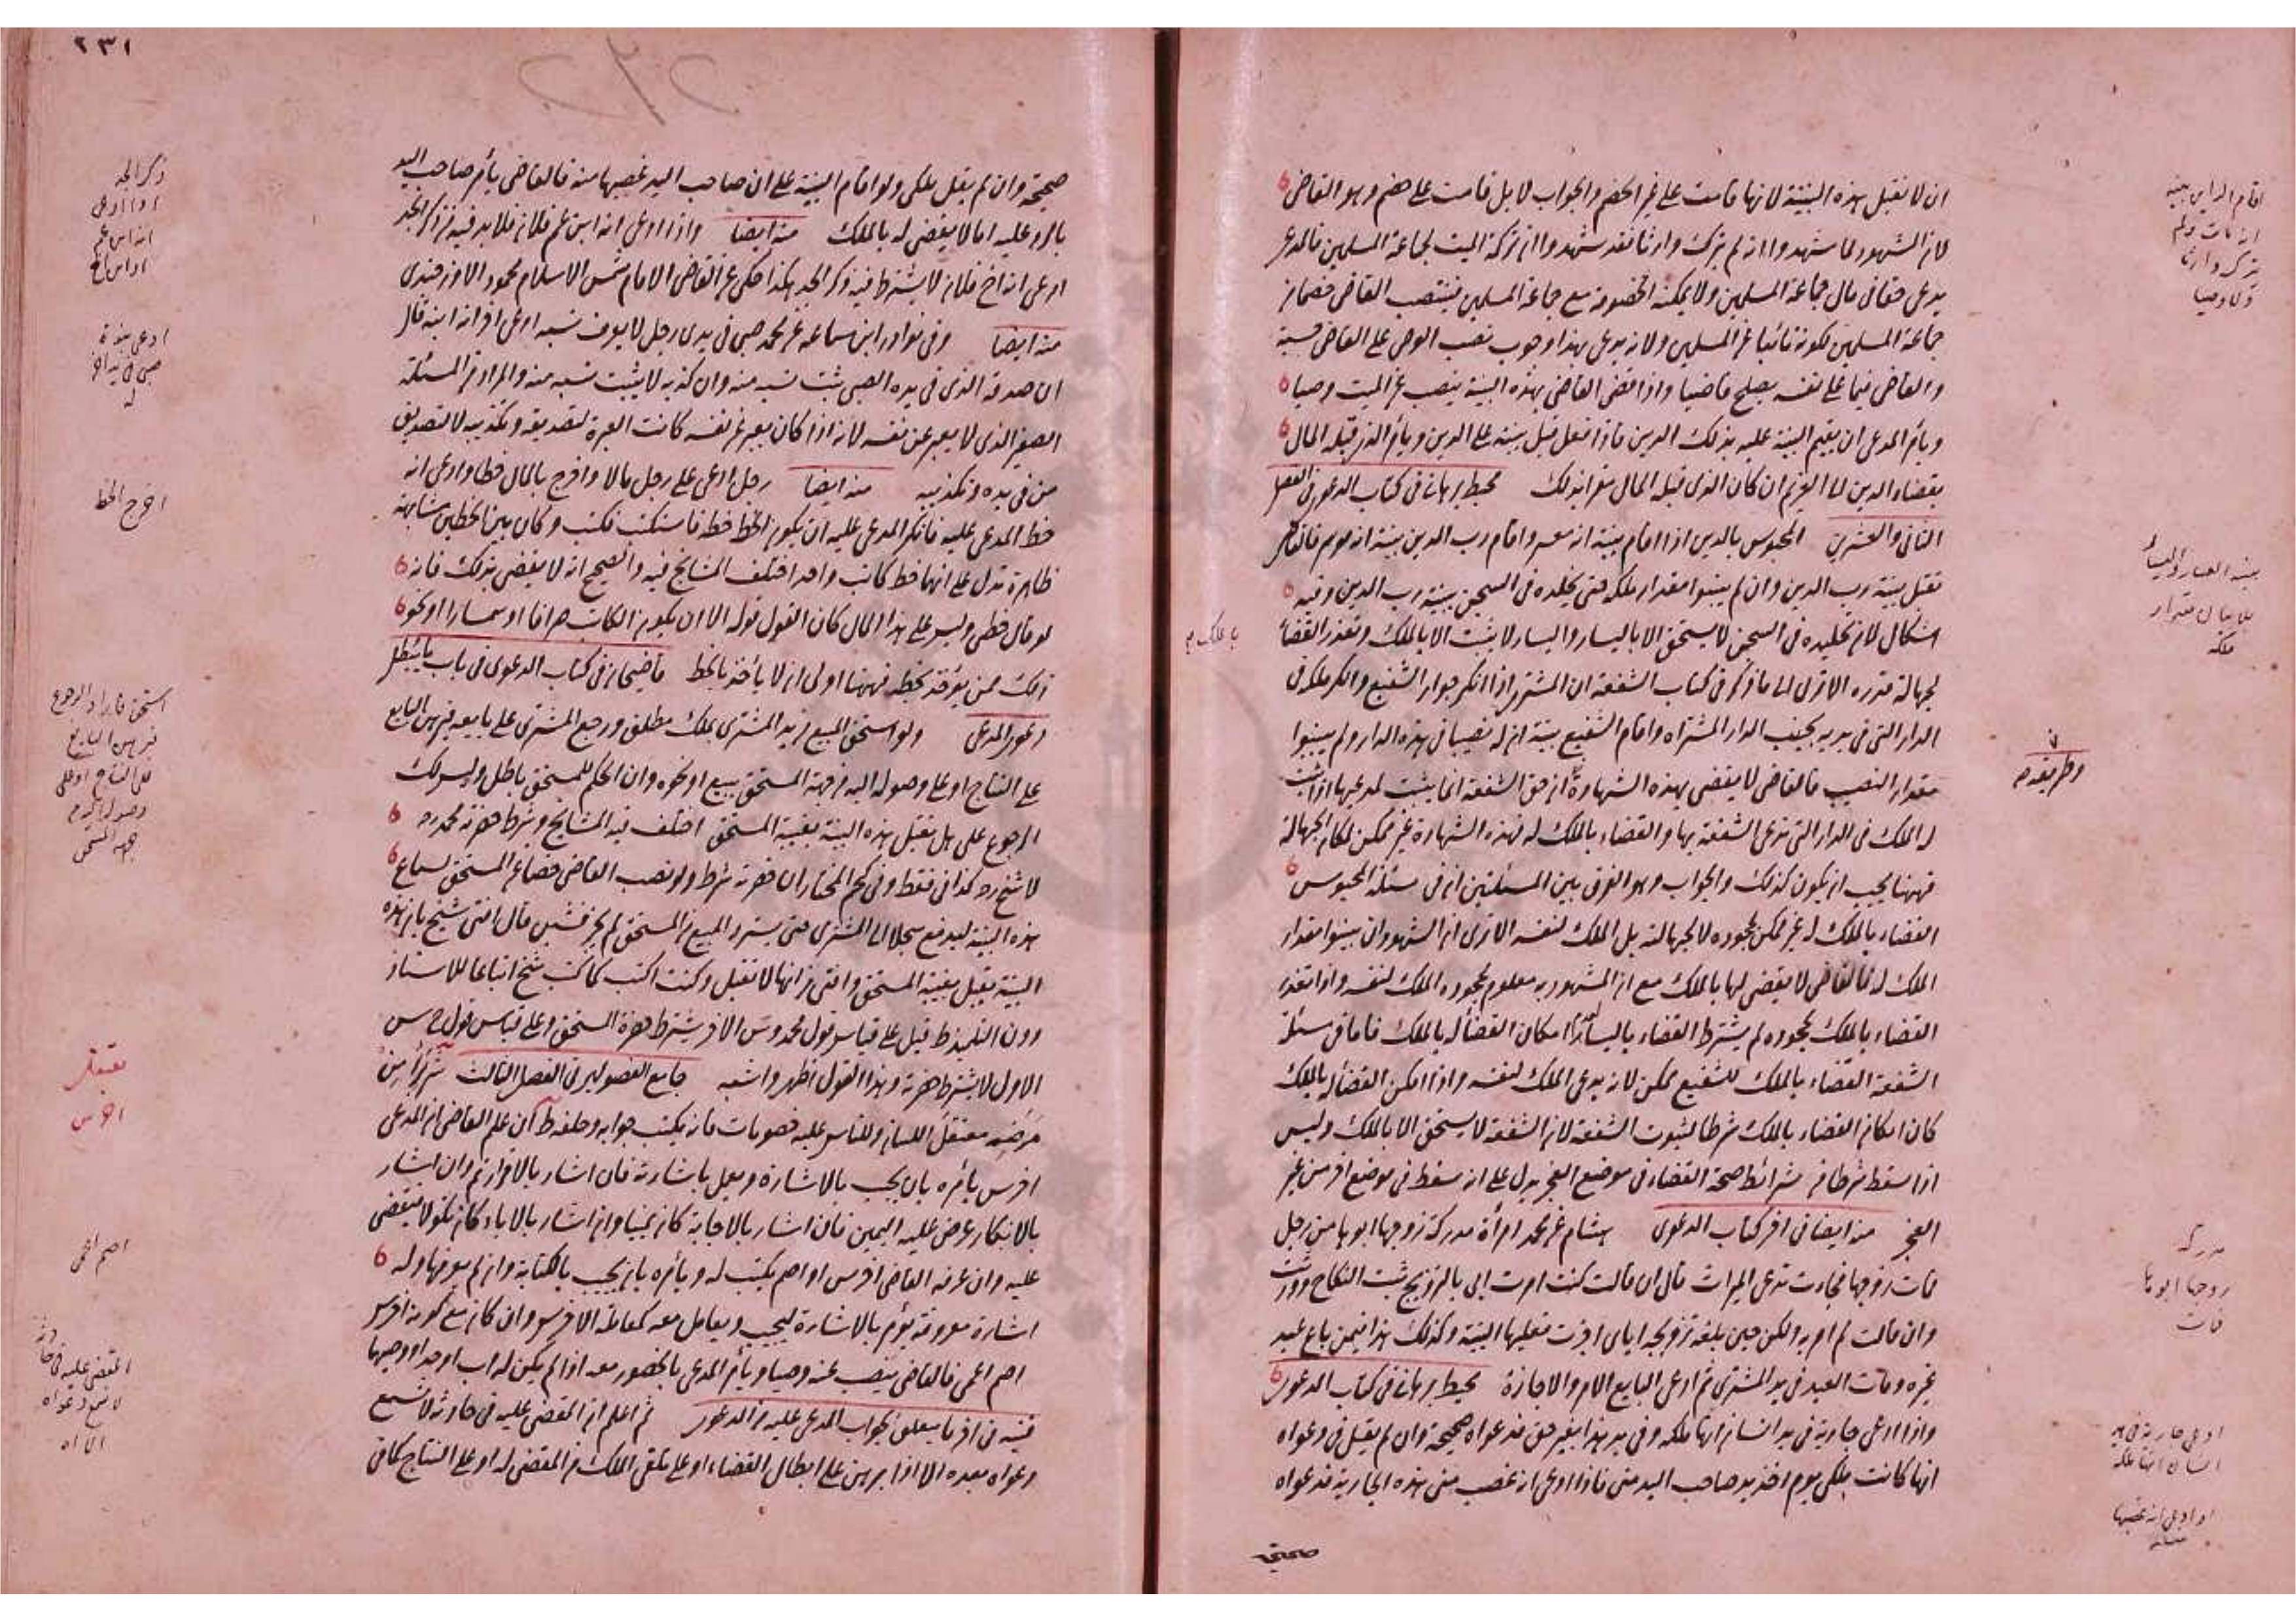 ان لا تقبل هذه البينة لانها قامت على غير الخصم والجواب لا بل قامت على خصم وهو القاضى
لان الشهود لما شهدوا انه لم يترك وارثا فقد شهدوا ان تركة الميت لجماعة المسلمين فالمدعى
يدعى حقا فى مال جماعة المسلمين ولا يمكنه الخصومة مع جماعة المسلمين فينتصب القاضى خصما عن
جماعة المسلمين لكونه نائبا عن المسلمين ولانه يدعى بهذا وجوب نصب الوصى على القاضى حسبة
والقاضى فيما على نفسه يصلح قاضيا واذا قضى القاضى بهذه البينة ينصب عن الميت وصيا
ويأمر المدعى ان يقيم البينة عليه بذلك الدين فاذا فعل قبل بينته على الدين ويأمر الذى قبله المال
بقضاء الدين الى الغريم ان كان الذى قبله المال مقرا بذلك محيط برهانى فى كتاب الدعوى فى الفصل
الثانى والعشرين المحبوس بالدين اذا اقام بينة انه معسر واقام رب الدين بينة انه موسر فالقاضى
تقبل بينة رب الدين وان لم يبينوا مقدار ملكه حتى يخلده فى السجن ببينة رب الدين وفيه
اشكال لان تخليده فى السجن لا يستحق الا باليسار واليسار لا يثبت الا بالملك وتعذر القضاء
لجهالة قدره الا ترى الى ما ذكر فى كتاب الشفعة ان المشترى اذا انكر جوار الشفيع وانكر ملكه فى
الدار التى فى يديه بجنب الدار المشتراه واقام الشفيع بينة ان له نصيبا فى هذه الدار ولم يبينوا
مقدار النصيب فالقاضى لا يقضى بهذه الشهادة لان حق الشفعة انما يثبت لمدعيها اذا ثبت
له الملك فى الدار التى تدعى الشفعة بها والقضاء بالملك له بهذه الشهادة غير ممكن لمكان الجهالة
فههنا يجب ان يكون كذلك والجواب وهو الفرق بين المسئلتين ان فى مسئلة المحبوس
القضاء بالملك له غير ممكن لجحوده لا لجهالته بل الملك لنفسه الا ترى ان الشهود ان بينوا مقدار
الملك له فالقاضى لا يقضى لها بالملك مع ان المشهود به معلوم لجحوده الملك لنفسه واذا تعذر
القضاء بالملك لجحوده لم يشترط القضاء باليسار امكان القضاء له بالملك فاما فى مسئلة
الشفعة القضاء بالملك للشفيع ممكن لانه يدعى الملك لنفسه واذا امكن القضاء له بالملك
كان امكان القضاء بالملك شرطا لثبوت الشفعة لان الشفعة لا يستحق الا بالملك وليس
اذا سقط شرطا من شرائط صحة القضاء فى موضع العجز يدل على انه سقط فى موضع اخر من غير
العجز منه ايضا فى اخر كتاب الدعوى هشام عن محمد امرأة مدركة زوجها ابوها من رجل
فمات زوجها فجاءت تدعى الميراث قال ان قالت كنت امرت ابى بالتزويج ثبت النكاح وورثت
وان قالت لم امره ولكن حين بلغه تزويجه اياى اجزت فعليها البينة وكذلك هذا فيمن باع عبد
غيره ومات العبد فى يد المشترى ثم ادعى البايع الامر والاجازة محيط برهانى فى كتاب الدعوى
واذا ادعى جارية فى يد انسان انها ملكه وفى يد هذا بغير حق فدعواه صحيحة وان لم يقل فى دعواه
انها كانت ملكى يوم اخذ يد صاحب اليد منى فاذا ادعى انه غصب منى هذه الجارية فدعواه
صحيحة
اقام الداين بينة
انه مات ولم
يترك وارثا
ولا وصيا
ملكه
مدركة
زوجها ابوها
فمات
ادعى جارية فى يد
انسان انها ملكه
او ادعى انه غصبها
منه
٢٣١
صحيحة وان لم يقل ملكى ولو اقام البينة على ان صاحب اليد غصبها منه فالقاضى يأمر صاحب اليد
بالرد عليه اما لا يقضى له بالملك منه ايضا واذا ادعى انه ابن عم فلان فلا بد فيه من ذكر الجد
ادعى انه اخ فلان لا يشترط فيه ذكر الجد هكذا حكى عن القاضى الامام شمس الاسلام محمود الاوزجندى
منه ايضا وفى نوادر ابن سماعة عن محمد صبى فى يدى رجل لا يعرف نسبه ادعى اخر انه ابنه قال
ان صدقه الذى فى يده الصبى ثبت نسبه منه وان كذبه لا يثبت نسبه منه والمراد من المسئلة
الصغير الذى لا يعبر عن نفسه لانه اذا كان يعبر عن نفسه كانت العبرة لتصديقه وتكذيبه لا لتصديق
من فى يده وتكذيبه منه ايضا رجل ادعى على رجل مالا واخرج بالمال خطا وادعى انه
خط المدعى عليه فانكر المدعى عليه ان يكون الخط خطه فاستكتب فكتب وكان بين الخطين مشابهة
ظاهرة تدل على انهما خط كاتب واحد اختلف المشايخ فيه والصحيح انه لا يقضى بذلك فانه
لو قال خطى وليس على هذا المال كان القول قوله الا ان يكون الكاتب صرافا او سمسارا او نحو
ذلك ممن يؤخذ بخطه فههنا اولى ان لا يأخذ بالخط قاضيخان فى كتاب الدعوى فى باب ما يبطل
دعوى المدعى ولو استحق المبيع من يد المشترى بملك مطلق ورجع المشترى على بايعه فبرهن البايع
على النتاج او على وصوله اليه من جهة المستحق ببيع او نحوه وان الحكم للمستحق باطل وليس لك
الرجوع على هل يقبل هذه البينة بغيبة المستحق اختلف فيه المشايخ وشرط حضرته محمد رح
البينة يقبل بغيبة المستحق وافتى انها لا تقبل وكنت اكتب كما كتب شيخ اتباعا للاستاذ
الاول لا يشترط حضرته وهذا القول اظهر واشبه جامع الفصولين فى الفصل الثالث
معتقل اللسان وللناس عليه خصومات فانه يكتب جوابه وحلفه ط ان علم القاضى ان المدعى
اخرس يأمره بان يجيب بالاشارة ويعمل باشارته فان اشار بالاقرار تم وان اشار
بالانكار عرض عليه اليمين فان اشار بالاجابة كان يمينا وان اشار بالاباء كان نكولا فيقضى
عليه وان عرف القاضى اخرس او اصم يكتب له ويأمره بان يجيب بالكتابة وان لم يعرفها وله
اشارة معروفة يؤمر بالاشارة ليجيب ويعامل معه كمعاملة الاخرس وان كان مع كونه اخرس
اصم اعمى فالقاضى ينصب عنه وصيا ويأمر المدعى بالخصومة معه اذا لم يكن له اب او جد او وصيهما
قنية فى اخر ما يتعلق بجواب المدعى عليه من الدعوى ثم اعلم ان المقضى عليه فى حادثة لا تسمع
دعواه بعده الا اذا برهن على ابطال القضاء او على تلقى الملك من المقضى له او على النتاج كما فى
ذكر الجد
اذا ادعى
انه ابن عم
او ابن اخ
اخرج الخط
معتقل
اخرس
اصم اعمى